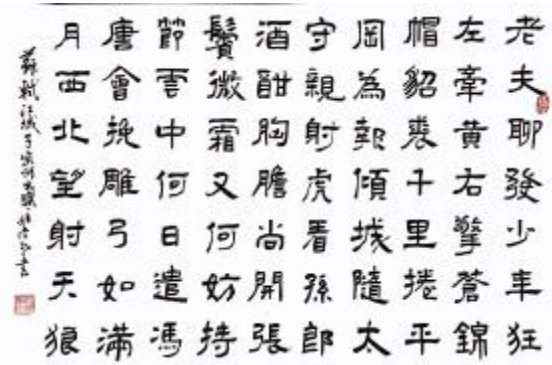 老夫聊發少年狂
左牽黄右擎蒼錦
帽貂裘千里捲平
岡為報傾城隨太
守親射虎看孫郎
酒酣胸膽尚開張
鬢微霜又何妨持
節雲中何日遣馮
唐會挽雕弓如滿
月西北望射天狼
蘇軾江城子密州出獵